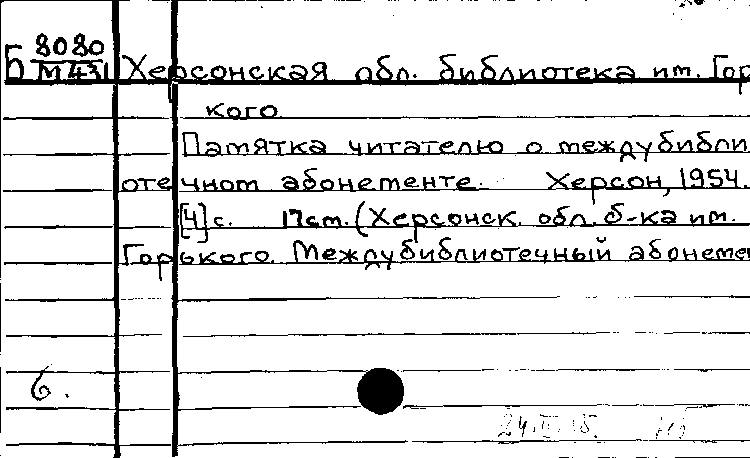 Б 8080
М431
Херсонская обл. библиотека им. Горь
кого
Памятка читателю о междубибли
отечном абонементе. Херсон, 1954.
[4] с. 17 см. (Херсонск. обл. б-ка им.
Горького. Междубиблиотечный абонеме
6.